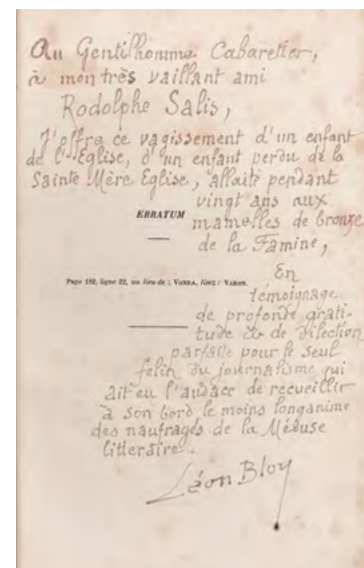 Au Gentilhomme Cabaretier,
à mon très vaillant ami
Rodolphe Salis,
J'offre ce vagissement d'un enfant
de l'Eglise, d'un enfant perdu de la
Sainte Mère Eglise, allaité pendant
vingt ans aux
ERRATUM
mamelles de bronze
de la Famine,
En
Page 182, ligne 22, au lieu de : VONRA, lisez : VARON.
témoignage
de profonde grati-
tude & de dilection
parfaite pour le seul
félin du journalisme qui
ait eu l'audace de recueillir
à son bord le moins longanime
des naufragés de la Méduse
littéraire.
Léon Bloy